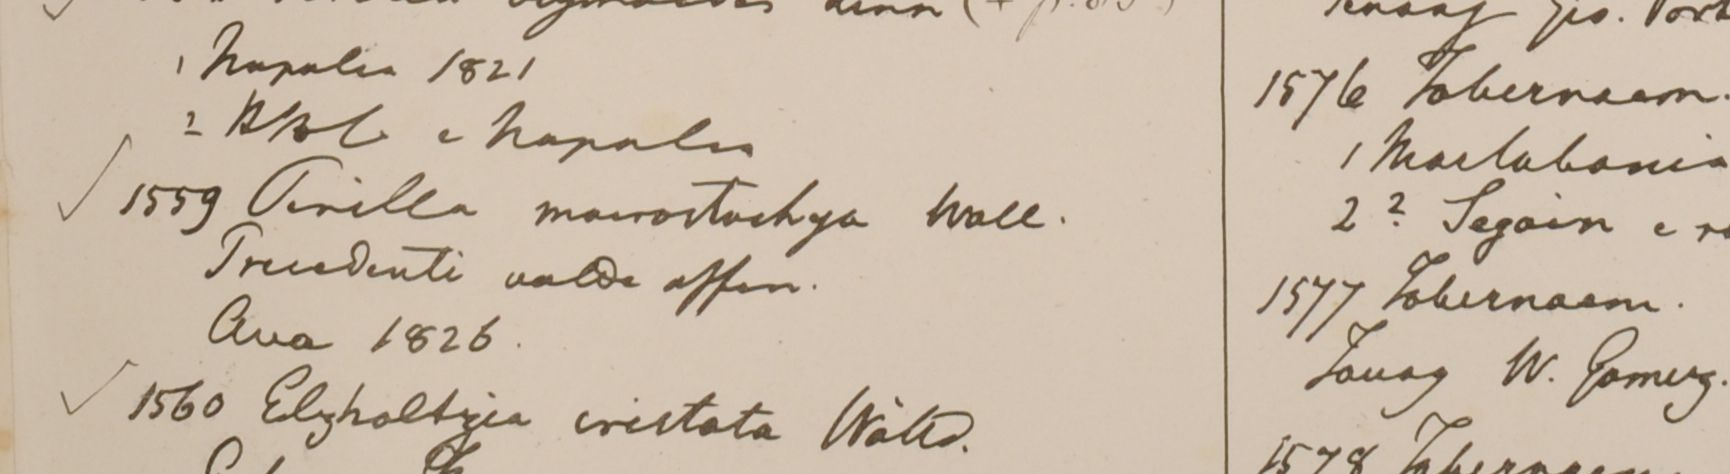 1 Napalia 1821
2 HBC e Napalia
1559 Perilla macrostachya Wall.
Precedenti valde affin.
Ava 1826.
1560 Elzholtzia cristata Willd.
1576 Tabernaem.
1 Martabania
2? Segain e
1577 Tabernaem.
Tavoy W. Gomez.
1578 Tabernaem